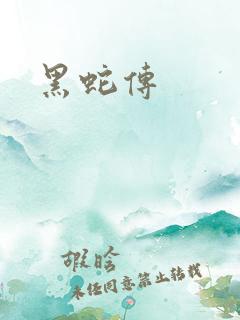 黑蛇傳
嘏晗
未经同意禁止转载